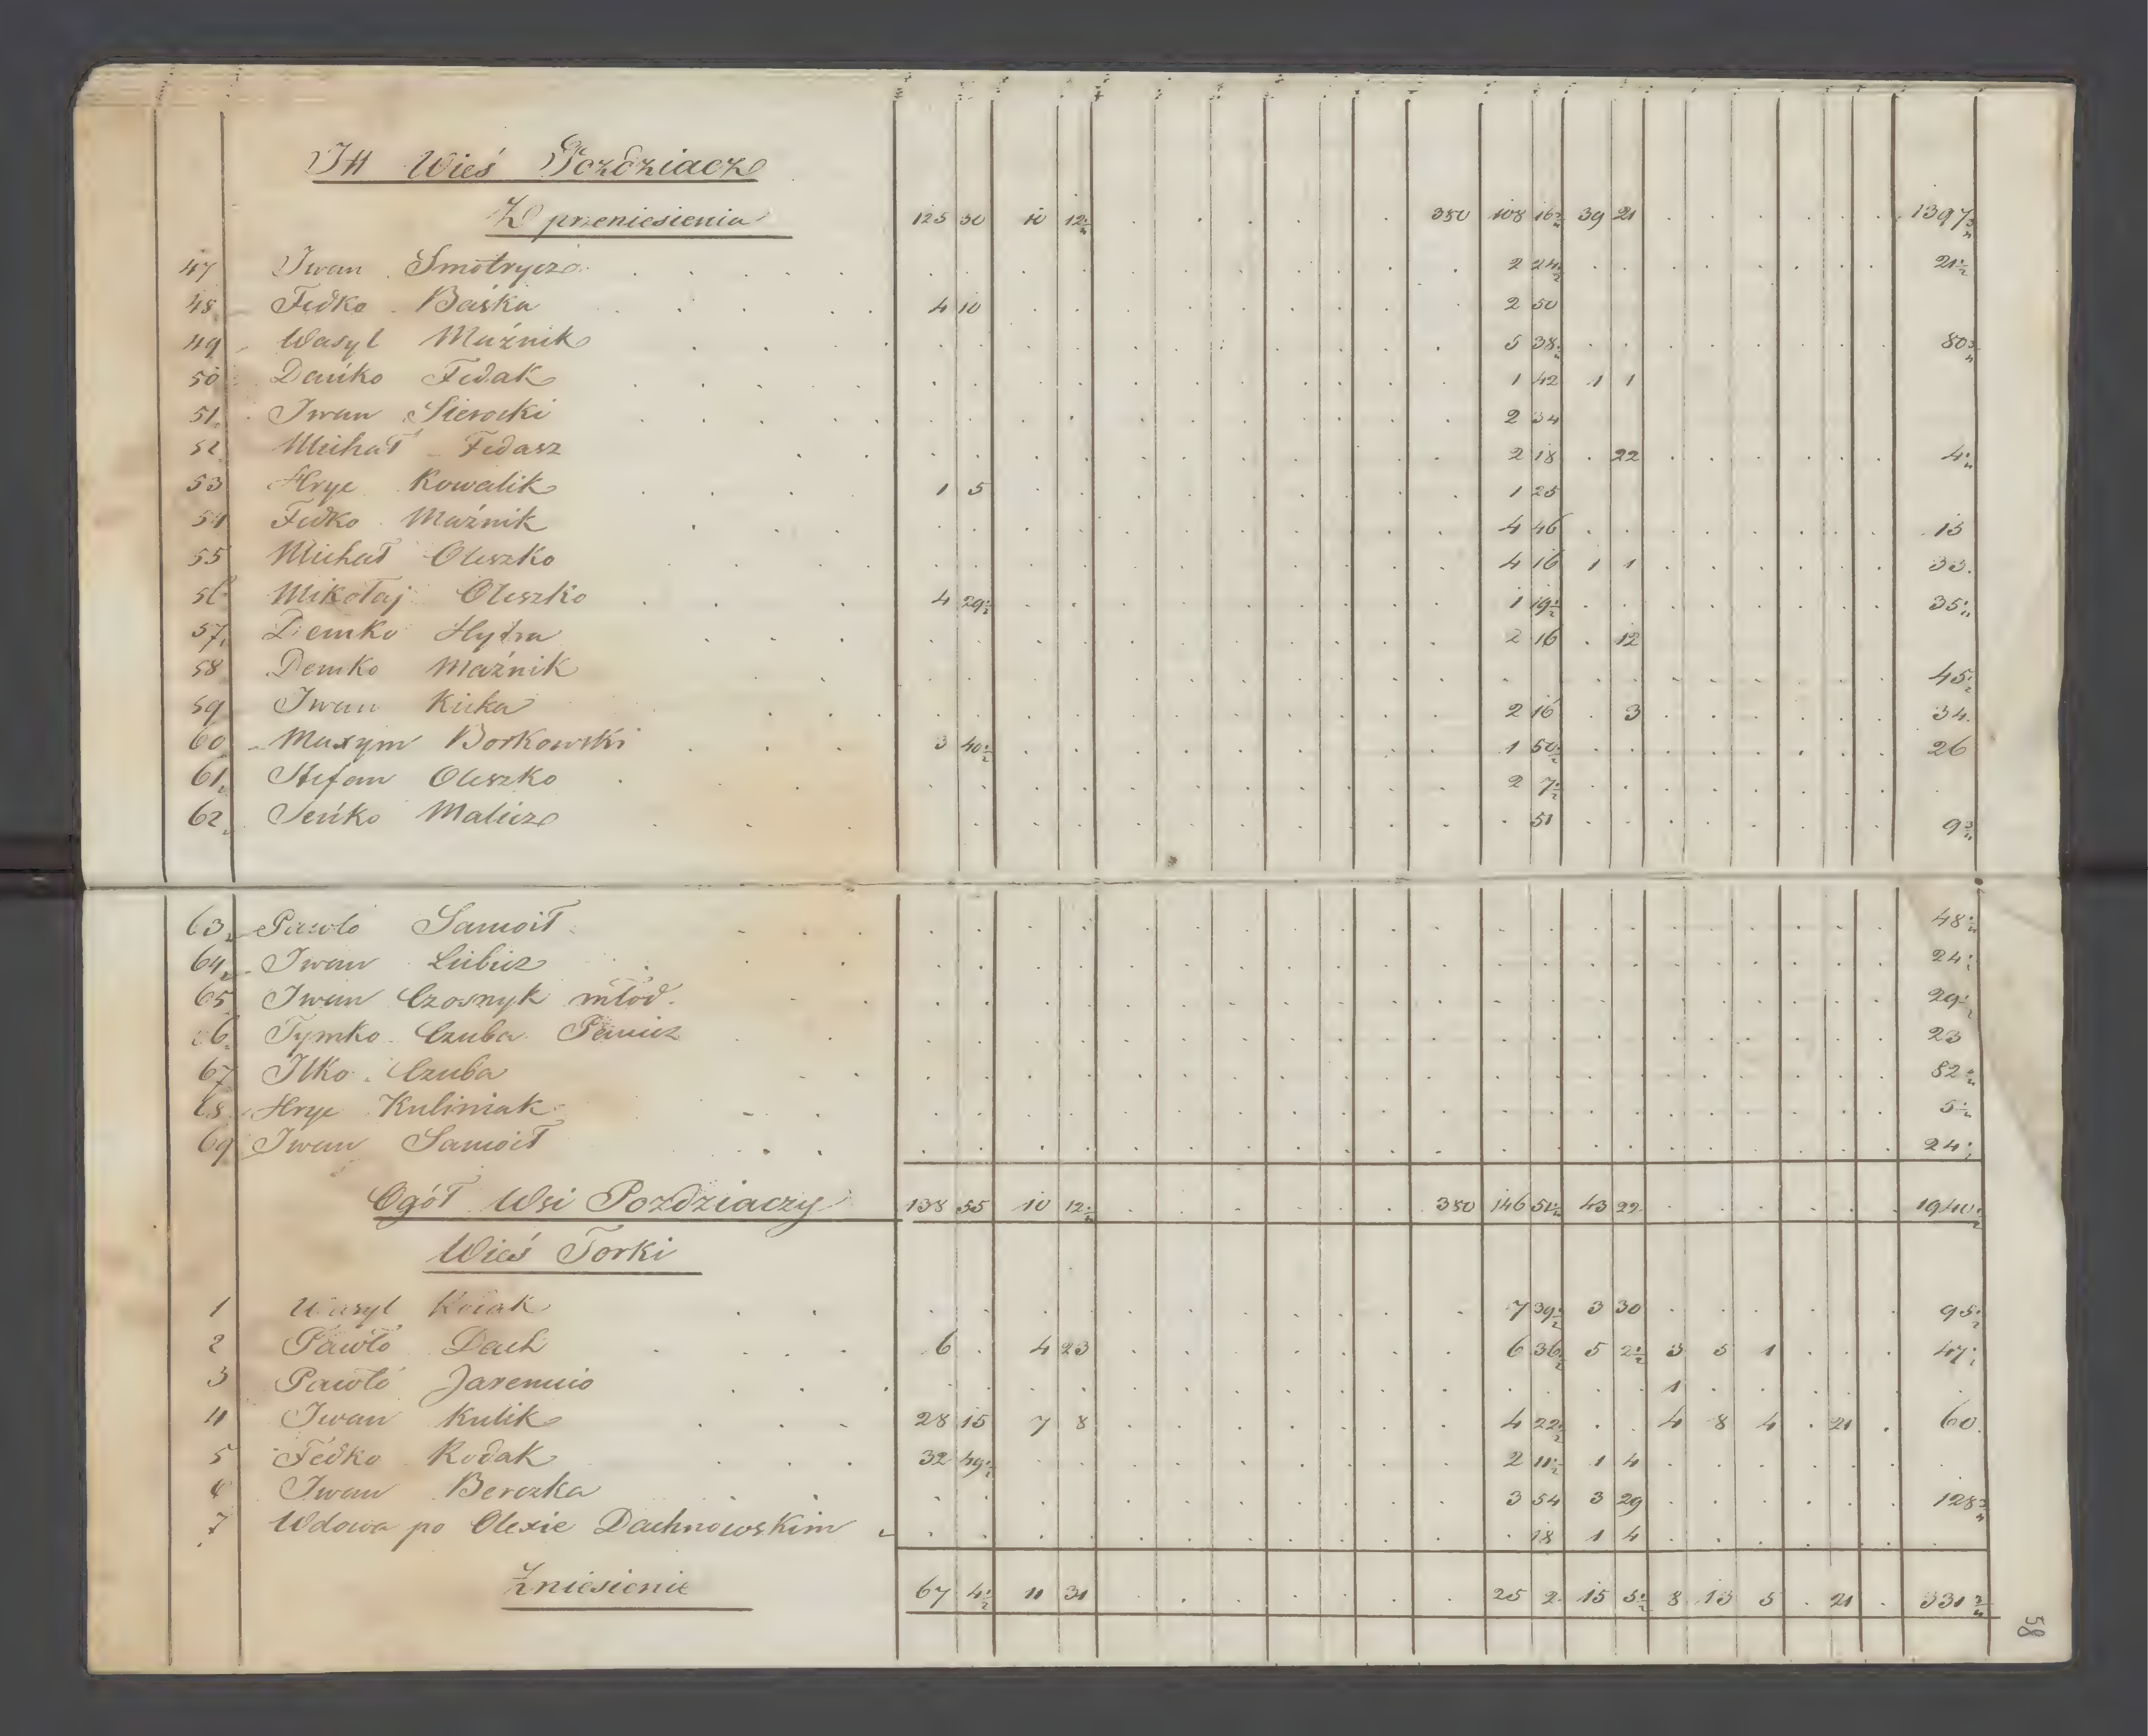 Wieś Pozdziacz
Z przeniesienia 125 30 10 12½ 380 108 16¾ 39 21 1397¾
47 Iwan Smotrycz 2 24½ 21½
48 Fedko Baśka 4 10 2 50
49 Wasyl Maźnik 5 38 80¾
50 Dańko Fedak 1 42 1 1
51 Iwan Sierocki 2 34
52 Michał Fedasz 2 18 22 4
53 Hryc Kowalik 1 5 1 25
54 Fedko Maźnik 4 46 15
55 Michał Oleszko 4 16 1 1 33
56 Mikołaj Oleszko 4 29½ 1 19½ 35
57 Demko Hytra 2 16 12
58 Demko Maźnik 45½
59 Iwan Kicka 2 16 3 34
60 Maxym Borkowski 3 40½ 1 50½ 26
61 Stefan Oleszko 2 7½
62 Seńko Malicz 51 9¾
63 Pawlo Samoił 48
64 Iwan Lubicz 24
65 Iwan Czosnyk młod. 29½
66 Tymko Czuba 23
67 Ilko Czuba 82
68 Hryc Kuliniak 5
69 Iwan Samoił 24
Ogół Wsi Pozdziaczy 138 55 10 12½ 380 146 51 43 22 1940½
Wieś Torki
1 Wasyl 7 39½ 3 30 95½
2 Pawło Dach 6 4 23 6 36½ 5 2½ 3 5 1 47
3 Pawło Jaremcio 1
4 Iwan Kulik 28 15 7 8 4 22½ 4 8 4 21 60
5 Fedko Kodak 32 49½ 2 11½ 1 4
6 Iwan Berezka 3 54 3 29 128¾
7 Wdowa po Olexie Dachnowskim 18 1 4
Zniesienie 67 4½ 11 31 25 2 15 5½ 8 13 5 21 331¾
58